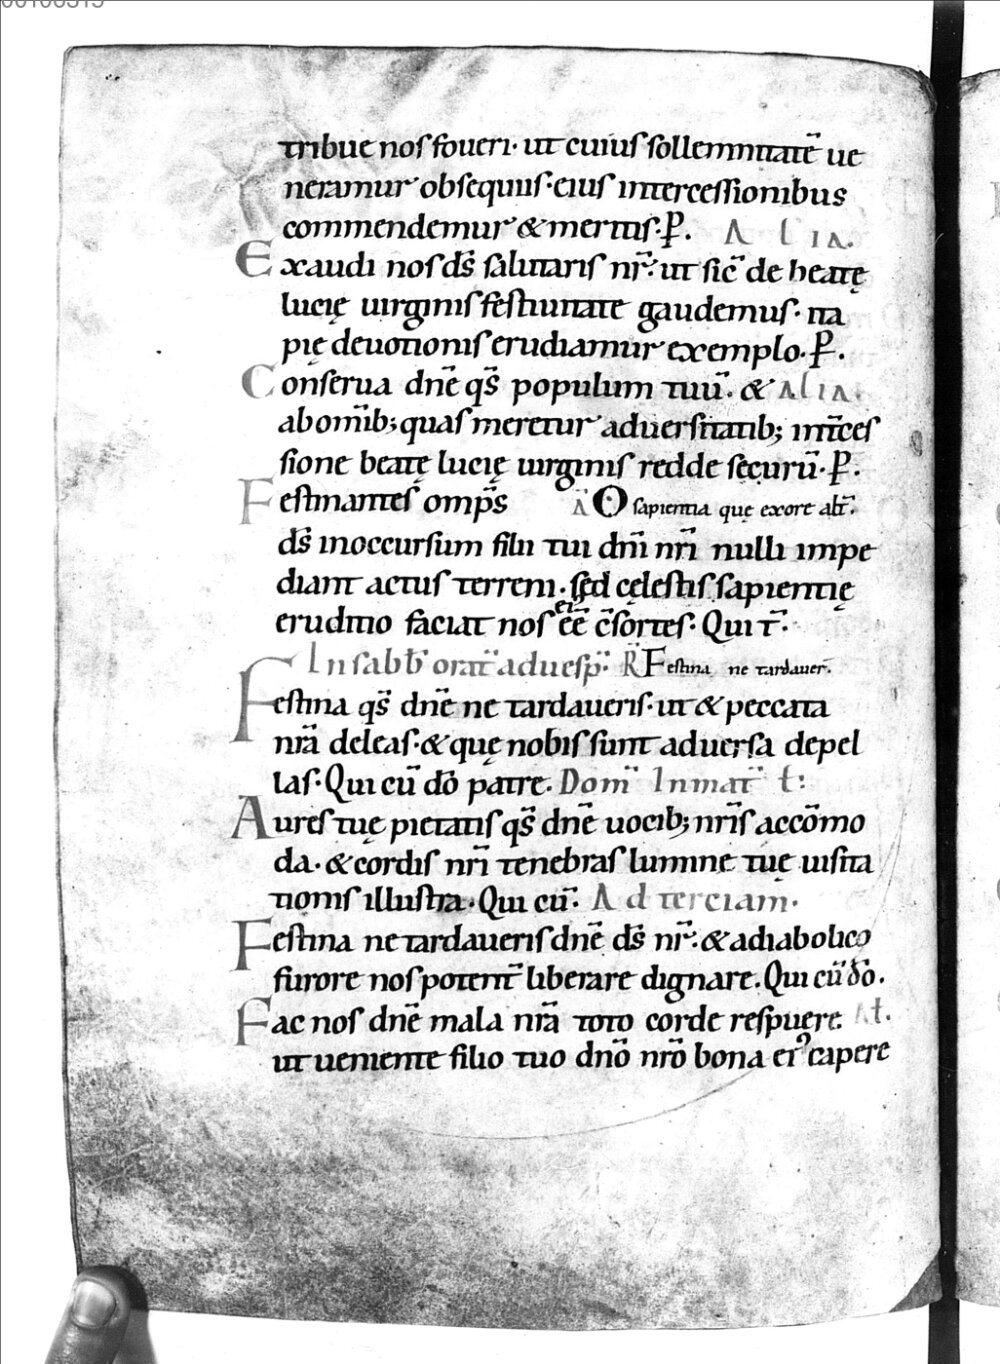 tribue nos foueri· ut cuius sollemnitatē ue
neramur obsequiis· eius intercessionibus
commendemur & meritis· P̄. ALIA.
Exaudi nos ds̄ salutaris nr̄· ut sic̄ de beatę
lucię uirginis festiuitate gaudemus· ita
pię deuotionis erudiamur exemplo. P̄.
Conserua dn̄e qs̄ populum tuū· & ALIA.
abom̄ib; quas meretur aduersitatib; int̄ces
sione beatę lucię uirginis redde sęcurū· P̄.
Festinantes omp̄s Ā O sapientia que exore alt̄.
ds̄ inoccursum filii tui dn̄i nr̄i nulli impe
diant actus terreni· sed cęlestis sapientię
eruditio faciat nos ei' eē c̄sortes· Qui t̄·
In sabb̄ orat̄ aduesp̄· R̄ Festina ne tardauer̄.
Festina qs̄ dn̄e ne tardaueris· ut & peccata
nr̄a deleas· & quę nobis sunt aduersa depel
las· Qui cū dō patre. Dom̄ Inmat̄ t̄:
Aures tuę pietatis qs̄ dn̄e uocib; nr̄is accōmo
da· & cordis nr̄i tenebras lumine tuę uisita
tionis illustra· Qui cū· Ad terciam·
Festina ne tardaueris dn̄e ds̄ nr̄· & adiabolico
furore nos potent̄ liberare dignare. Qui cū dō.
Fac nos dn̄e mala nr̄a toto corde respuere At̄.
ut uemente filio tuo dn̄o nr̄o bona ei' capere